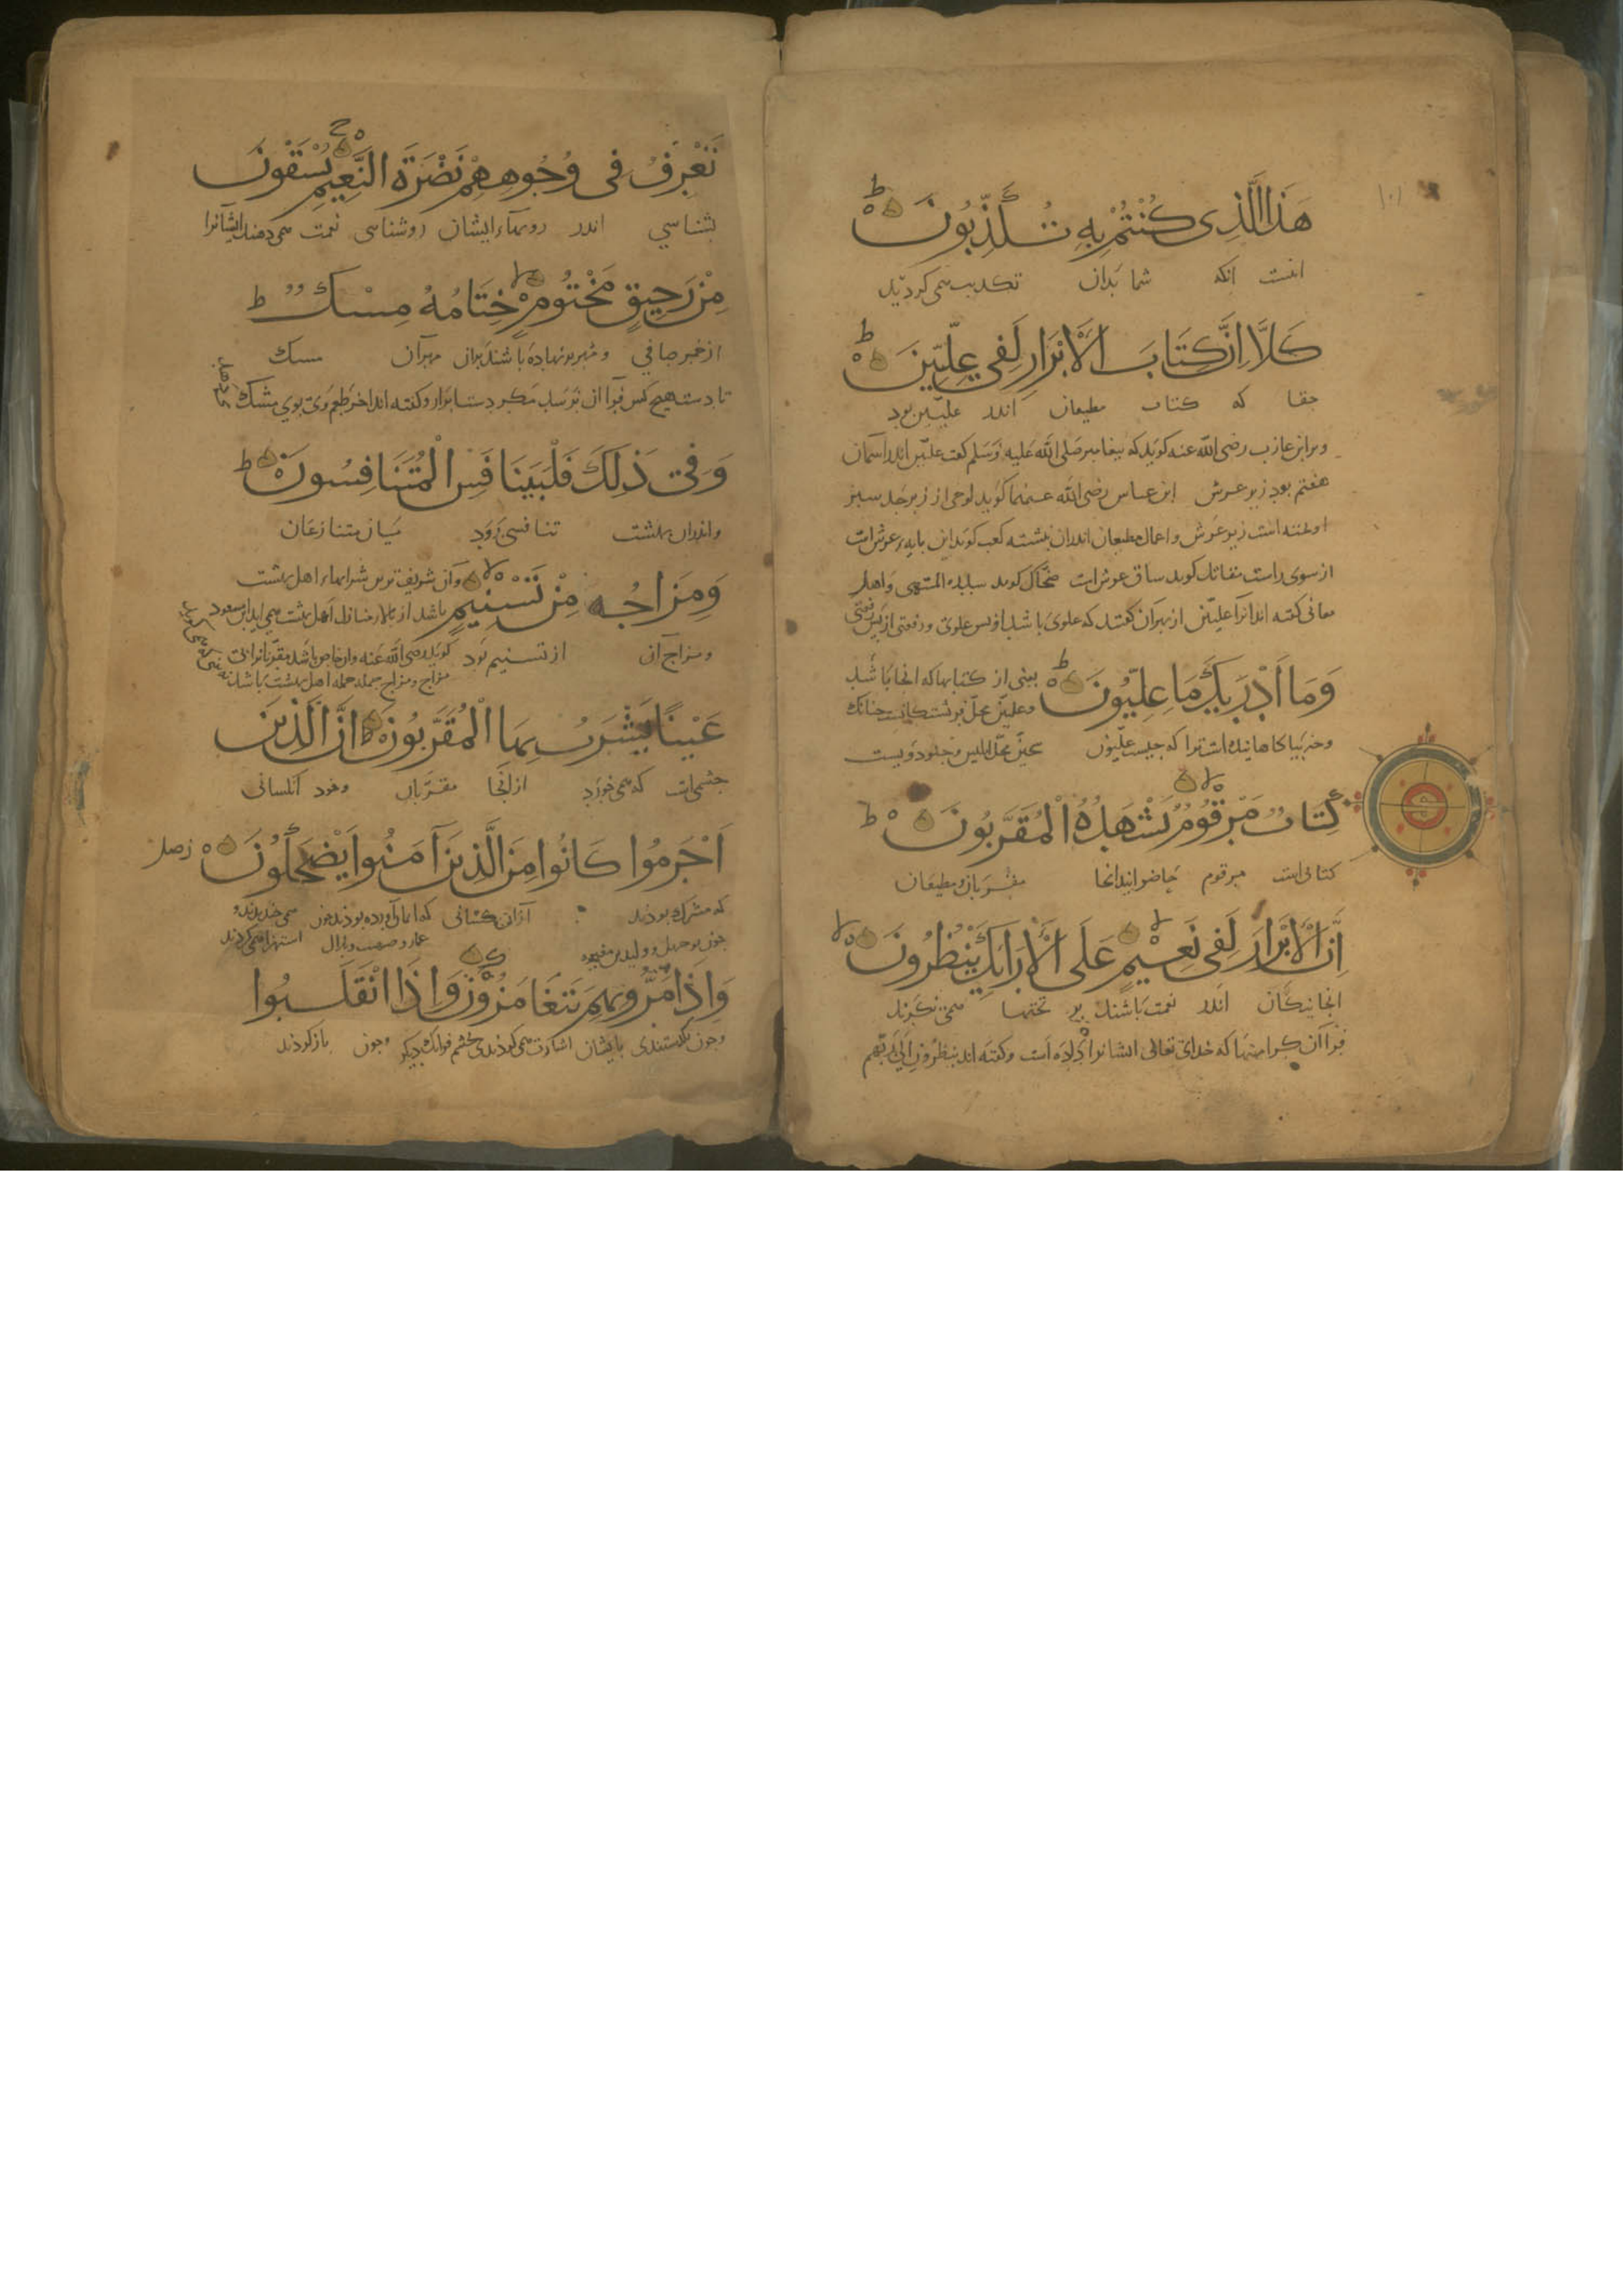 هَذَا الَّذِی كُنْتُمْ بِهِ تُكَذِّبُونَ ط
اینست انکه شما بدان تکذیب همی کردید
كَلَّا اِنَّ كِتَابَ الْأَبْرَارِ لَفِی عِلِّیِّینَ ط
حقا که کتاب مطیعان اندر علیین بود
وبراء بن عازب رضی الله عنه کوید که پیغامبر صلی الله علیه وسلم کفت علیین اندر آسمان
هفتم بود زیر عرش ابن عباس رضی الله عنهما کوید لوحی از زبرجد سبز
اوخته است زیر عرش و اعمال مطیعان اندران نبشته کعب کوید این پایهء عرش است
از سوی راست مقاتل کوید ساق عرش است ضحاک کوید سدرة المنتهی واهل
معانی کفته اند آنرا علیین از بهر آن کفتند که علوی باشد از پس علوی و رفعتی از پس رفعتی
وَمَا اَدْرَیكَ مَا عِلِّیُّونَ ط یعنی از کتابها که انجا باشد
وعلیین محل فرشتکانست چنانک
وچه بیاکاهانیده است ترا که چیست علیون سجین محل ابلیس و جنود ویست
كِتَابٌ مَرْقُومٌ لا یَشْهَدُهُ الْمُقَرَّبُونَ ط
کتابی است مرقوم حاضر ایند انجا مقربان و مطیعان
اِنَّ الْأَبْرَارَ لَفِی نَعِیْمٍ لا عَلَی الْأَرَائِكِ یَنْظُرُونَ لا
اندر نعمت باشند بر تختها همی نکرند
فرا آن کرامتها که خدای تعالی ایشانرا داده است و کفته اند ینظرون الی ربهم
تَعْرِفُ فِی وُجُوهِهِمْ نَضْرَةَ النَّعِیمِ ج یُسْقَوْنَ
بشناسی اندر رویهاء ایشان روشناسی نعمت همی دهند ایشانرا
مِنْ رَحِیقٍ مَخْتُومٍ لا خِتَامُهُ مِسْكٌ ط
از خمر صافی و مهر برنهاده باشند بران مهر آن مسک
تا دست هیچ کس فرا آن نرسد مکر دست ابرار و کفته اند اخر طعم وی بوی مشک
وَفِی ذَلِكَ فَلْیَتَنَافَسِ الْمُتَنَافِسُونَ ط
واندران بهشت تنافسی رود میان متنازعان
وَمِزَاجُهُ مِنْ تَسْنِیمٍ لا وآن شریف ترین شرابهاء اهل بهشت
باشد از بالاء منازل اهل بهشت همی اید ابن مسعود
ومزاج آن از تسنیم بود کوید رضی الله عنه وان خاص باشد مقربانرا بی
مزاج و مزاج جمله اهل بهشت باشد
عَیْنًا یَشْرَبُ بِهَا الْمُقَرَّبُونَ ط اِنَّ الَّذِینَ
چشمه است که همی خورد از انجا مقربان
اَجْرَمُوا كَانُوا مِنَ الَّذِینَ آمَنُوا یَضْحَكُونَ
که مشرک بودند ازان کسانی که ایمان آورده بودند چون همی خندیدند و
چون بوجهل و ولید بن مغیره عمار و صهیب و بلال استهزا همی کردند
وَاِذَا مَرُّوا بِهِمْ یَتَغَامَزُونَ وَاِذَا انْقَلَبُوا
وچون بکذشتندی بایشان اشارت همی کردندی بچشم وچون باز کردند